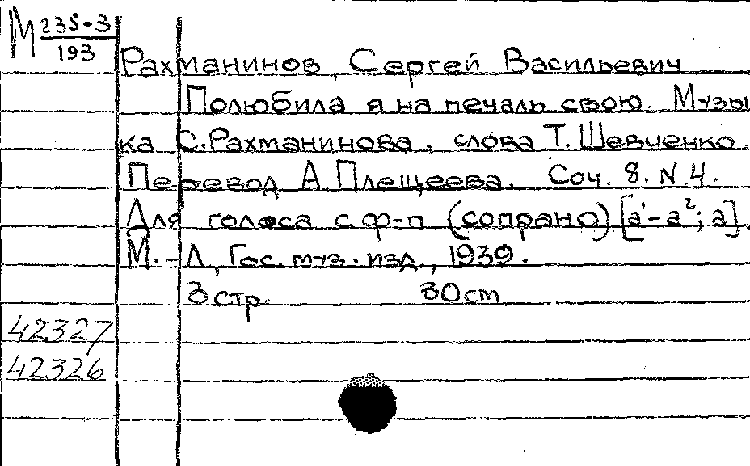 М 235-3
193
Рахманинов, Сергей Васильевич
Полюбила я на печаль свою. Музы
ка С. Рахманинова, слова Т. Шевченко.
Перевод А Плещеева. Соч. 8. N 4.
Для голоса с ф-п (сопрано) [a¹-a²; a]
М.-Л, Гос. муз. изд., 1939.
3 стр. 30 cm
42327
42326